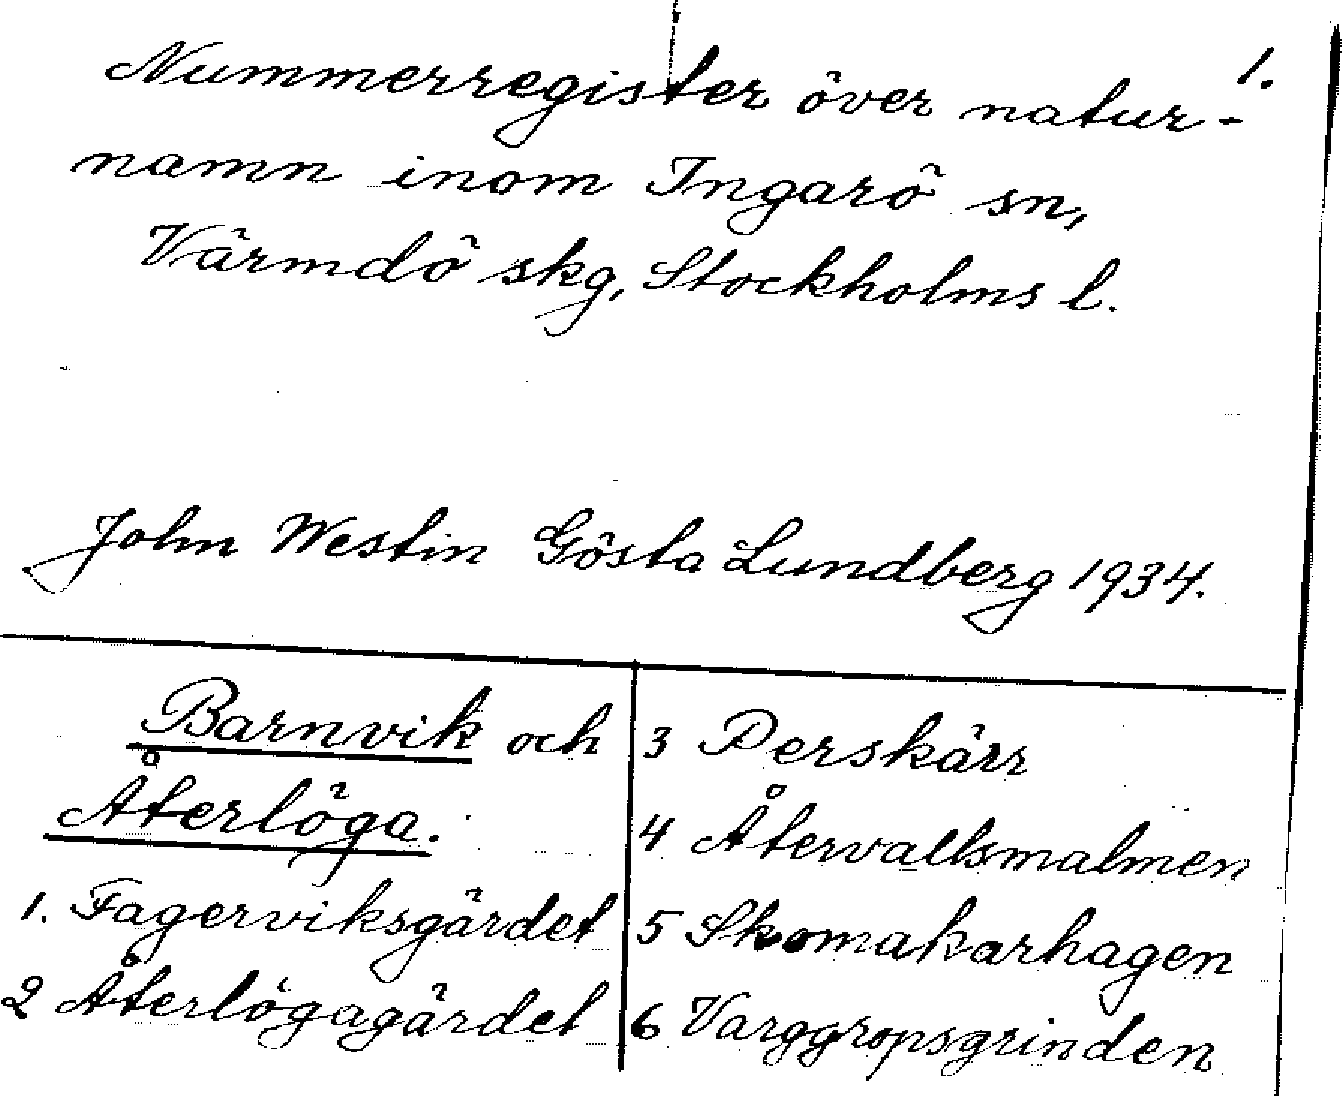 1.
Nummerregister över natur-
namn inom Ingarö sn,
Värmdö skg, Stockholms l.
John Westin Gösta Lundberg 1934.
Barnvik och
Återlöga.
1. Fagerviksgärdet
2 Återlögagärdet
3 Perskärr
4 Återvallsmalmen
5 Skomakarhagen
6 Varggropsgrinden